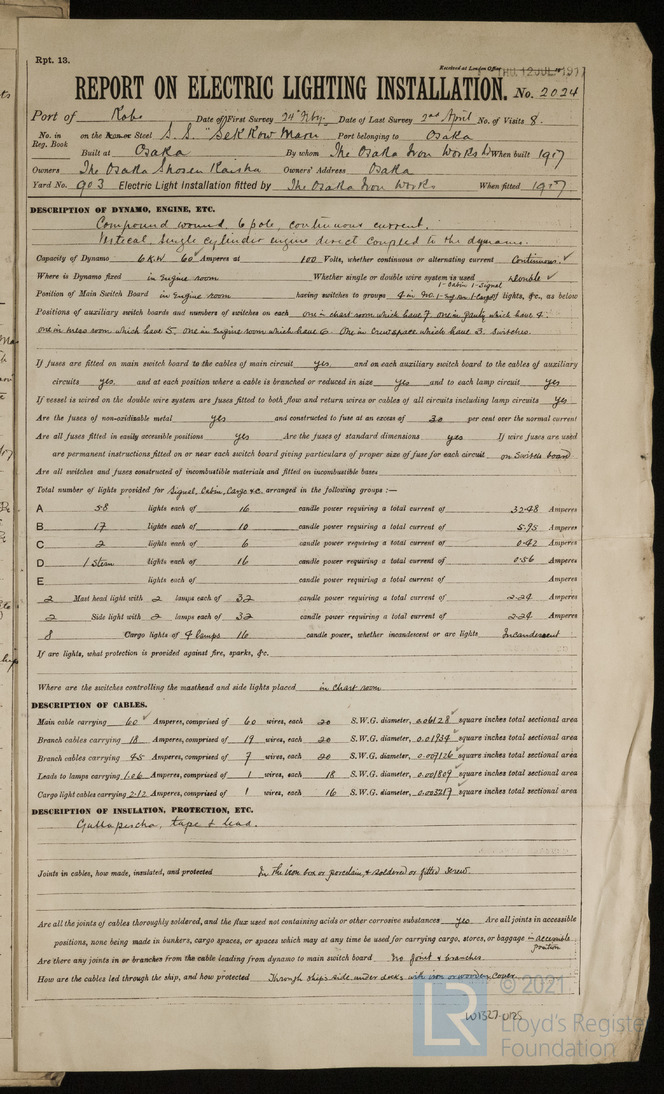 Rpt. 13.
Received at London Office THU. 12 JUL 1917
REPORT ON ELECTRIC LIGHTING INSTALLATION. No. 2024
Port of Kobe Date of First Survey 24th Feby. Date of Last Survey 2nd April No. of Visits 8.
No. in Reg. Book on the Iron or Steel S.S. "Sekkow Maru Port belonging to Osaka
Built at Osaka By whom The Osaka Iron Works Ld When built 1917
Owners The Osaka Shosen Kaisha Owners' Address Osaka
Yard No. 903 Electric Light Installation fitted by The Osaka Iron Works When fitted 1917.
DESCRIPTION OF DYNAMO, ENGINE, ETC.
Compound wound. 6 pole, continuous current.
Vertical, single cylinder engine direct coupled to the dynamo.
Capacity of Dynamo 6 K.W. 60 Amperes at 100 Volts, whether continuous or alternating current Continuous.
Where is Dynamo fixed in Engine room Whether single or double wire system is used Double
1-Cabin 1-Signal
Position of Main Switch Board in Engine room having switches to groups 4 in No. 1-Eng. rm 1-Cargo of lights, &c., as below
Positions of auxiliary switch boards and numbers of switches on each one in chart room which have 7. one in pantry which have 4.
one in mess room which have 5. one in Engine room which have 6. One in Crew space which have 3. Switches.
If fuses are fitted on main switch board to the cables of main circuit yes and on each auxiliary switch board to the cables of auxiliary
circuits yes and at each position where a cable is branched or reduced in size yes and to each lamp circuit yes
If vessel is wired on the double wire system are fuses fitted to both flow and return wires or cables of all circuits including lamp circuits yes
Are the fuses of non-oxidizable metal yes and constructed to fuse at an excess of 30 per cent over the normal current
Are all fuses fitted in easily accessible positions yes Are the fuses of standard dimensions yes If wire fuses are used
are permanent instructions fitted on or near each switch board giving particulars of proper size of fuse for each circuit on Switch board
Are all switches and fuses constructed of incombustible materials and fitted on incombustible bases
Total number of lights provided for Signal, Cabin, Cargo &c. arranged in the following groups :—
A 58 lights each of 16 candle power requiring a total current of 32.48 Amperes
B 17 lights each of 10 candle power requiring a total current of 5.95 Amperes
C 2 lights each of 6 candle power requiring a total current of 0.42 Amperes
D 1 Stern lights each of 16 candle power requiring a total current of 0.56 Amperes
E lights each of candle power requiring a total current of Amperes
2 Mast head light with 2 lamps each of 32 candle power requiring a total current of 2.24 Amperes
2 Side light with 2 lamps each of 32 candle power requiring a total current of 2.24 Amperes
8 Cargo lights of 4 lamps 16 candle power, whether incandescent or arc lights Incandescent
If arc lights, what protection is provided against fire, sparks, &c.
Where are the switches controlling the masthead and side lights placed in Chart room
DESCRIPTION OF CABLES.
Main cable carrying 60 Amperes, comprised of 60 wires, each 20 S.W.G. diameter, 0.06128 square inches total sectional area
Branch cables carrying 18 Amperes, comprised of 19 wires, each 20 S.W.G. diameter, 0.01934 square inches total sectional area
Branch cables carrying 4.5 Amperes, comprised of 7 wires, each 20 S.W.G. diameter, 0.007126 square inches total sectional area
Leads to lamps carrying 1.06 Amperes, comprised of 1 wires, each 18 S.W.G. diameter, 0.001809 square inches total sectional area
Cargo light cables carrying 2.12 Amperes, comprised of 1 wires, each 16 S.W.G. diameter, 0.003217 square inches total sectional area
DESCRIPTION OF INSULATION, PROTECTION, ETC.
Guttapercha, tape & lead.
Joints in cables, how made, insulated, and protected In the iron box or porcelain, & soldered or fitted screw.
Are all the joints of cables thoroughly soldered, and the flux used not containing acids or other corrosive substances yes Are all joints in accessible
positions, none being made in bunkers, cargo spaces, or spaces which may at any time be used for carrying cargo, stores, or baggage in accessible position
Are there any joints in or branches from the cable leading from dynamo to main switch board No joint & branches
How are the cables led through the ship, and how protected Through ships side under decks with iron or wooden cover.
W1327-0125
© 2021
LR
Lloyd's Register
Foundation